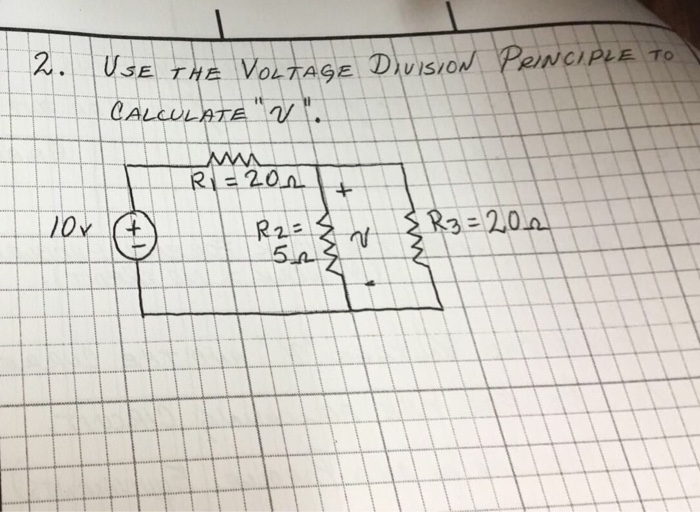 2. USE THE VOLTAGE DIVISION PRINCIPLE TO
CALCULATE "V".
R1 = 20Ω
+
10V
+
-
R2 =
5Ω
V
R3 = 20Ω
-